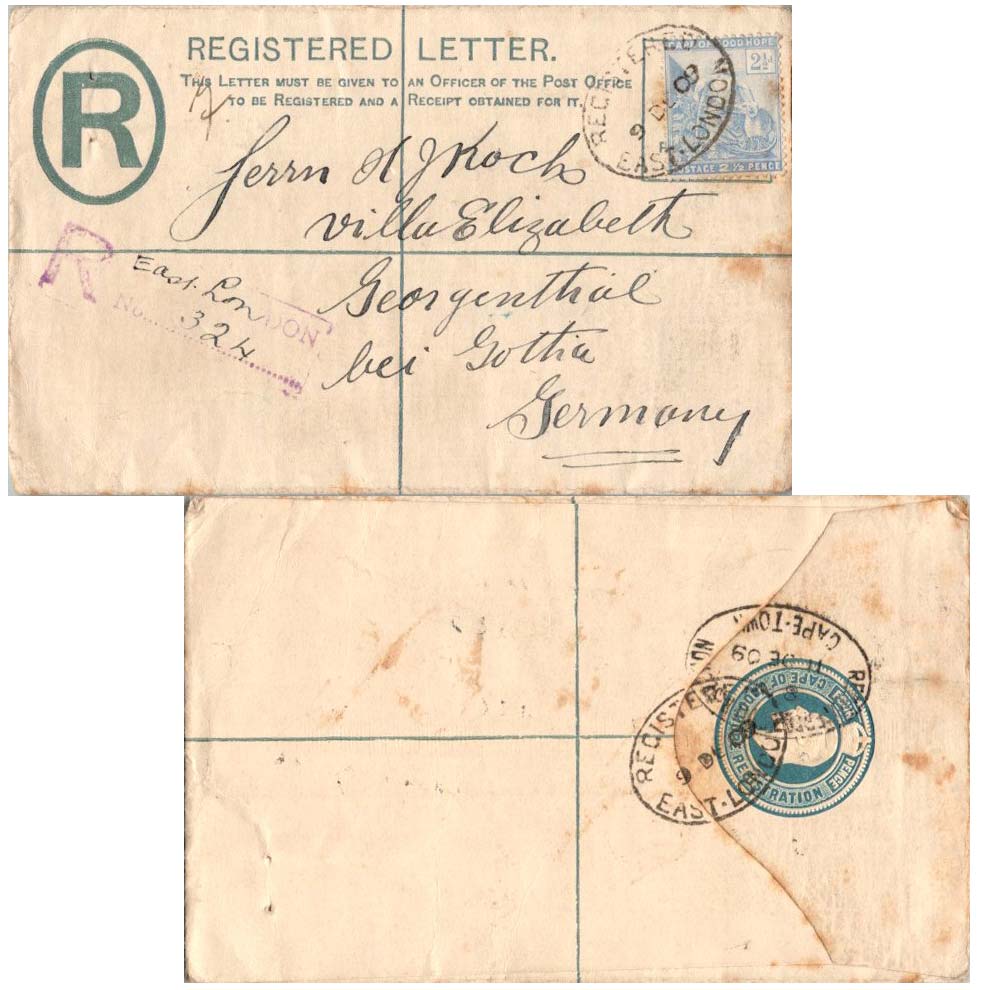 R
REGISTERED LETTER.
THIS LETTER MUST BE GIVEN TO AN OFFICER OF THE POST OFFICE
TO BE REGISTERED AND A RECEIPT OBTAINED FOR IT.
CAPE OF GOOD HOPE
2½
POSTAGE 2½ PENCE
REGISTERED
9 DE 09
A
EAST-LONDON
Herrn A J Koch
Villa Elizabeth
Georgenthal
bei Gotha
Germany
R
East London
No 324
CAPE-TOWN
DE 09
REGISTERED
9 DE 09
EAST-LONDON
CAPE OF GOOD HOPE
REGISTRATION
PENCE